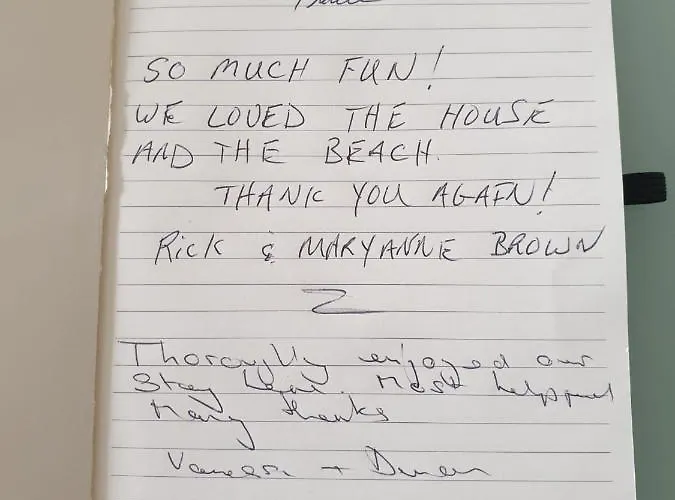 SO MUCH FUN!
WE LOVED THE HOUSE
AND THE BEACH.
THANK YOU AGAIN!
Rick & MARYANNE BROWN
Thoroughly enjoyed our
Stay here. Most helpful
Many thanks
Vanessa +